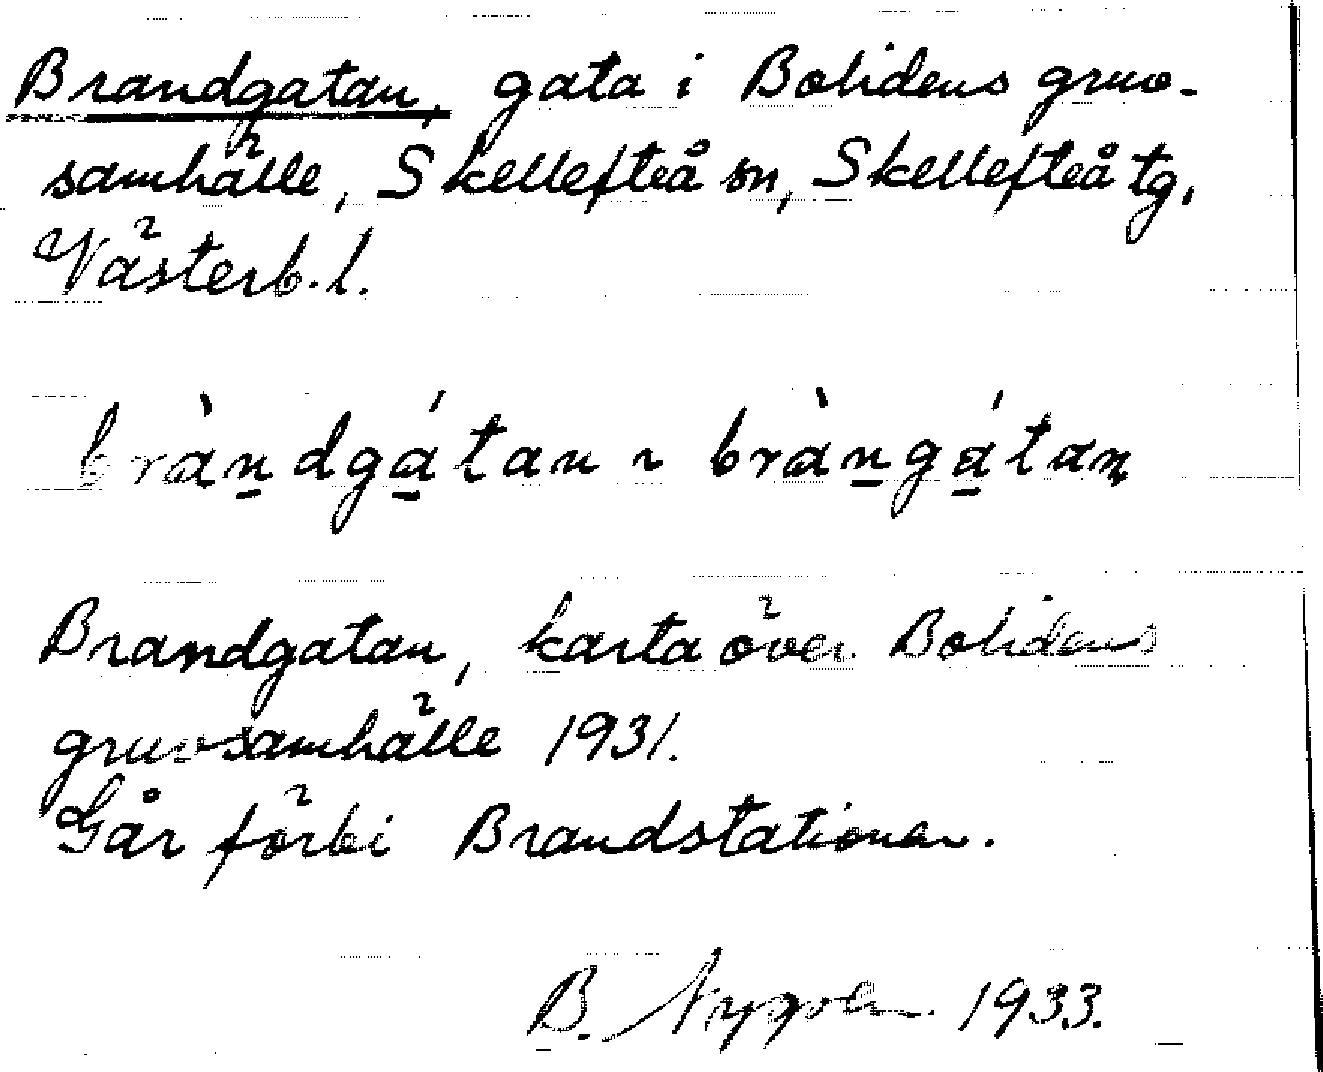 Brandgatan, gata i Bolidens gruv-
samhälle, Skellefteå sn, Skellefteå tg,
Västerb. l.
bràndgátan ~ bràngátan
Brandgatan, karta över Bolidens
gruvsamhälle 1931.
Går förbi Brandstationen.
B. 1933.